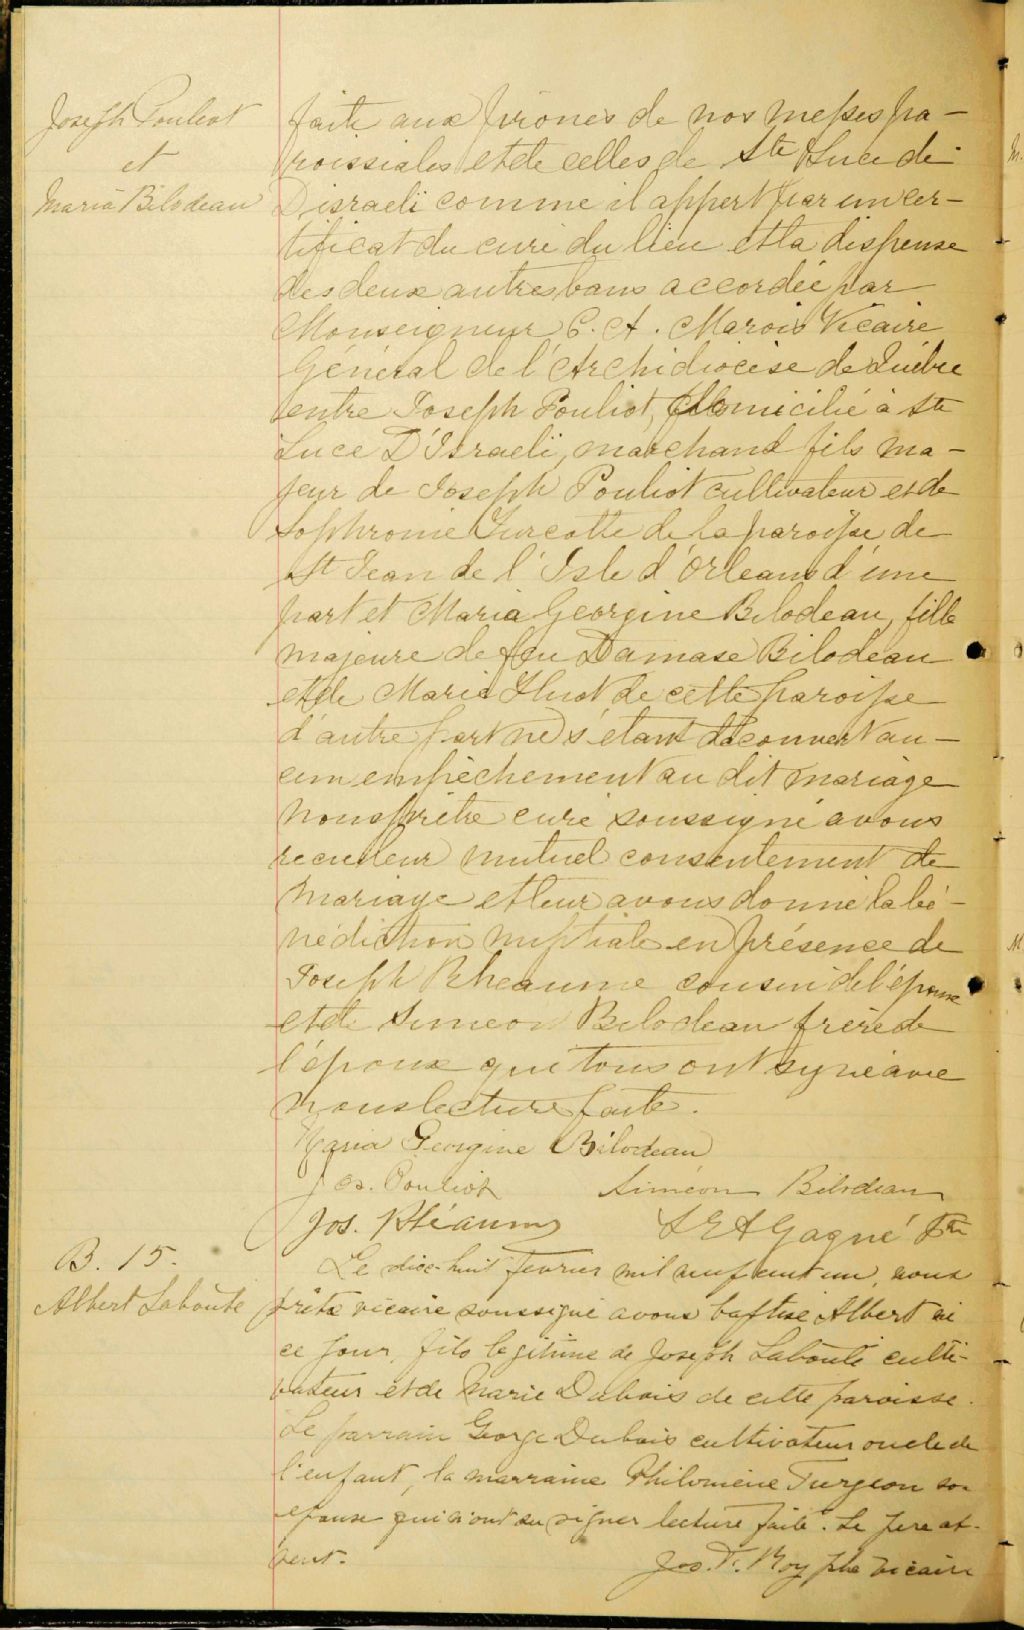 Joseph Pouliot
et
Maria Bilodeau
faite aux prônes de nos messes pa-
roissiales et de celles de Ste Luce de
Disraeli comme il appert par un cer-
tificat du curé du lieu et la dispense
des deux autres bans accordée par
Monseigneur C. A. Marois Vicaire
Général de l'Archidiocèse de Québec
entre Joseph Pouliot, domicilié à Ste
Luce D'Israeli, marchand fils ma-
jeur de Joseph Pouliot cultivateur et de
Sophronie Turcotte de la paroisse de
St Jean de l'Isle d'Orleans d'une
part et Maria Georgine Bilodeau, fille
majeure de feu Damase Bilodeau
et de Marie Huot de cette paroisse
d'autre part ne s'étant découvert au-
cun empêchement au dit mariage
nous prêtre curé soussigné avons
recu leur mutuel consentement de
mariage et leur avons donné la bé-
nédiction nuptiale en présence de
Joseph Rheaume cousin de l'épouse
et de Simeon Bilodeau frère de
l'époux qui tous ont signé avec
nous lecture faite.
Maria Georgine Bilodeau
Jos. Pouliot Siméon Bilodeau
Jos. Rhéaume Gagné Ptre
B. 15.
Albert Labonté
Le dix-huit fevrier mil neuf cent un, nous
prêtre vicaire soussigné avons baptisé Albert né
ce jour, fils legitime de Joseph Labonté culti-
vateur et de Marie Dubois de cette paroisse.
Le parrain George Dubois cultivateur oncle de
l'enfant, la marraine Philomène Turgeon son
epouse qui n'ont su signer lecture faite. Le pere ab-
sent. Jos. Roy ptre vicaire